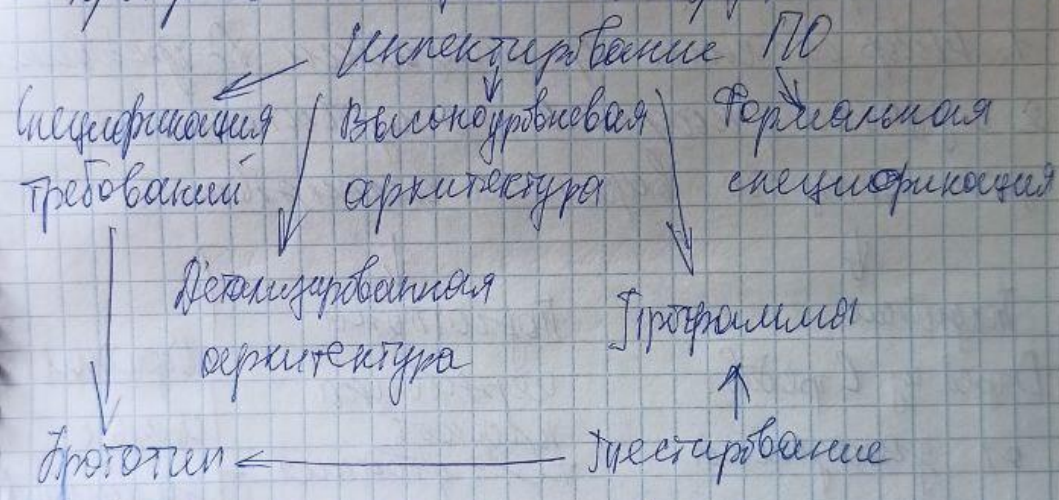 Инспектирование ПО
Спецификация
требований
Высокоуровневая
архитектура
Формальная
спецификация
Детализированная
архитектура
Программы
Прототип
Тестирование